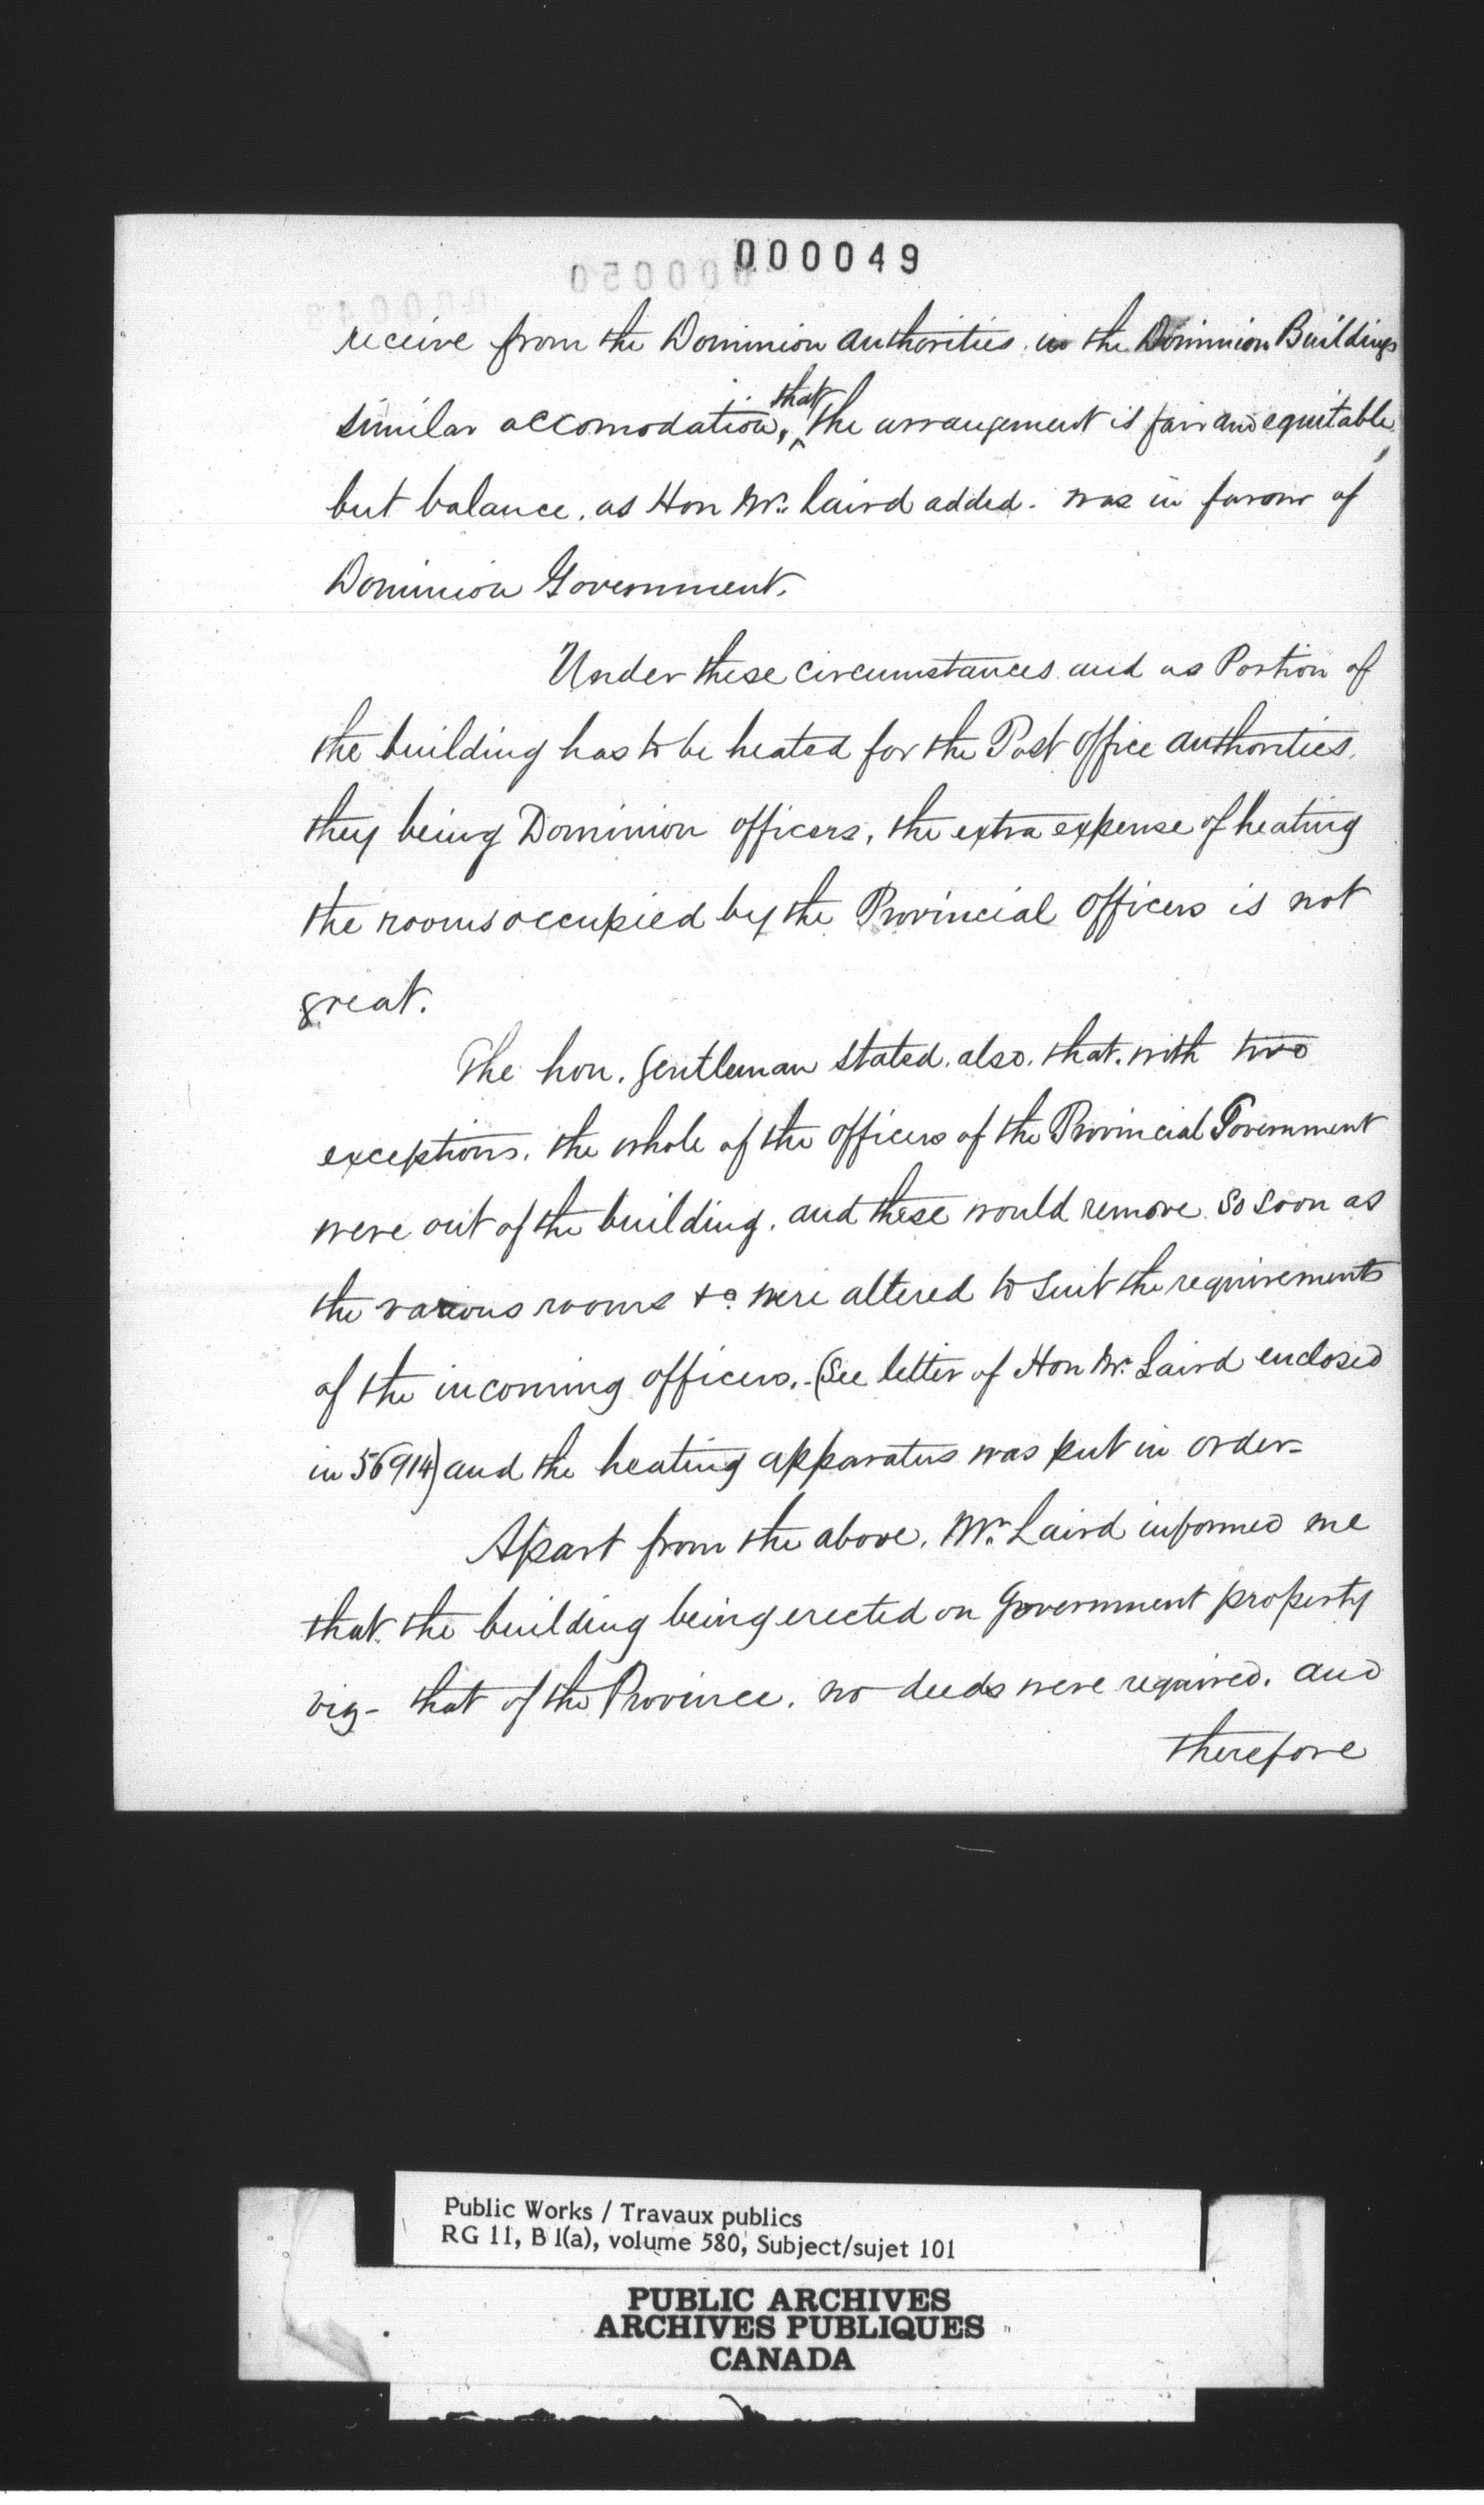 000049
receive from the Dominion authorities in the Dominion Buildings
similar accomodation, that the arrangement is fair and equitable,
but balance, as Hon Mr. Laird added. was in favour of
Dominion Government.
Under these circumstances and as Portion of
the building has to be heated for the Post Office authorities,
they being Dominion officers, the extra expense of heating
the rooms occupied by the Provincial Officers is not
great.
The hon. gentleman stated, also, that, with two
exceptions, the whole of the officers of the Provincial Government
were out of the building, and these would remove so soon as
the various rooms &c. were altered to suit the requirements
of the incoming officers. (See letter of Hon Mr. Laird enclosed
in 56914) and the heating apparatus was put in order-
Apart from the above, Mr. Laird informed me
that the building being erected on Government property
viz- that of the Province, no deeds were required, and
therefore
Public Works / Travaux publics
RG 11, B 1(a), volume 580, Subject/sujet 101
PUBLIC ARCHIVES
ARCHIVES PUBLIQUES
CANADA